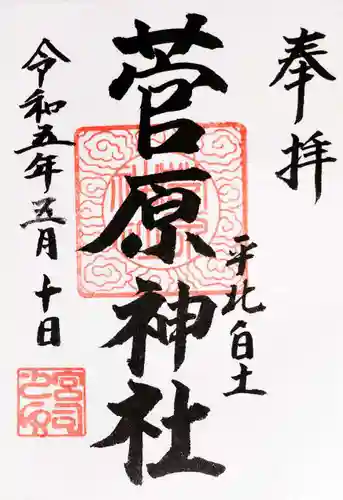 奉拝
平北白土
菅原神社
令和五年五月十日